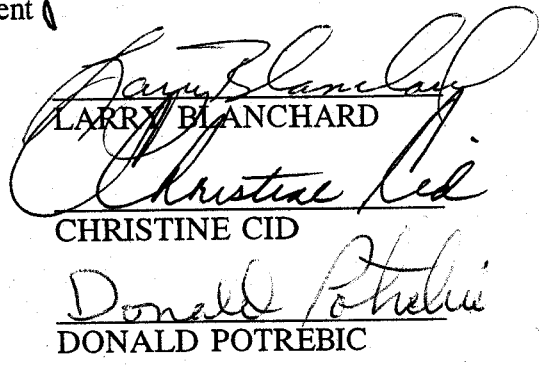 ent
Larry Blanchard
LARRY BLANCHARD
Christine Cid
CHRISTINE CID
Donald Potrebic
DONALD POTREBIC